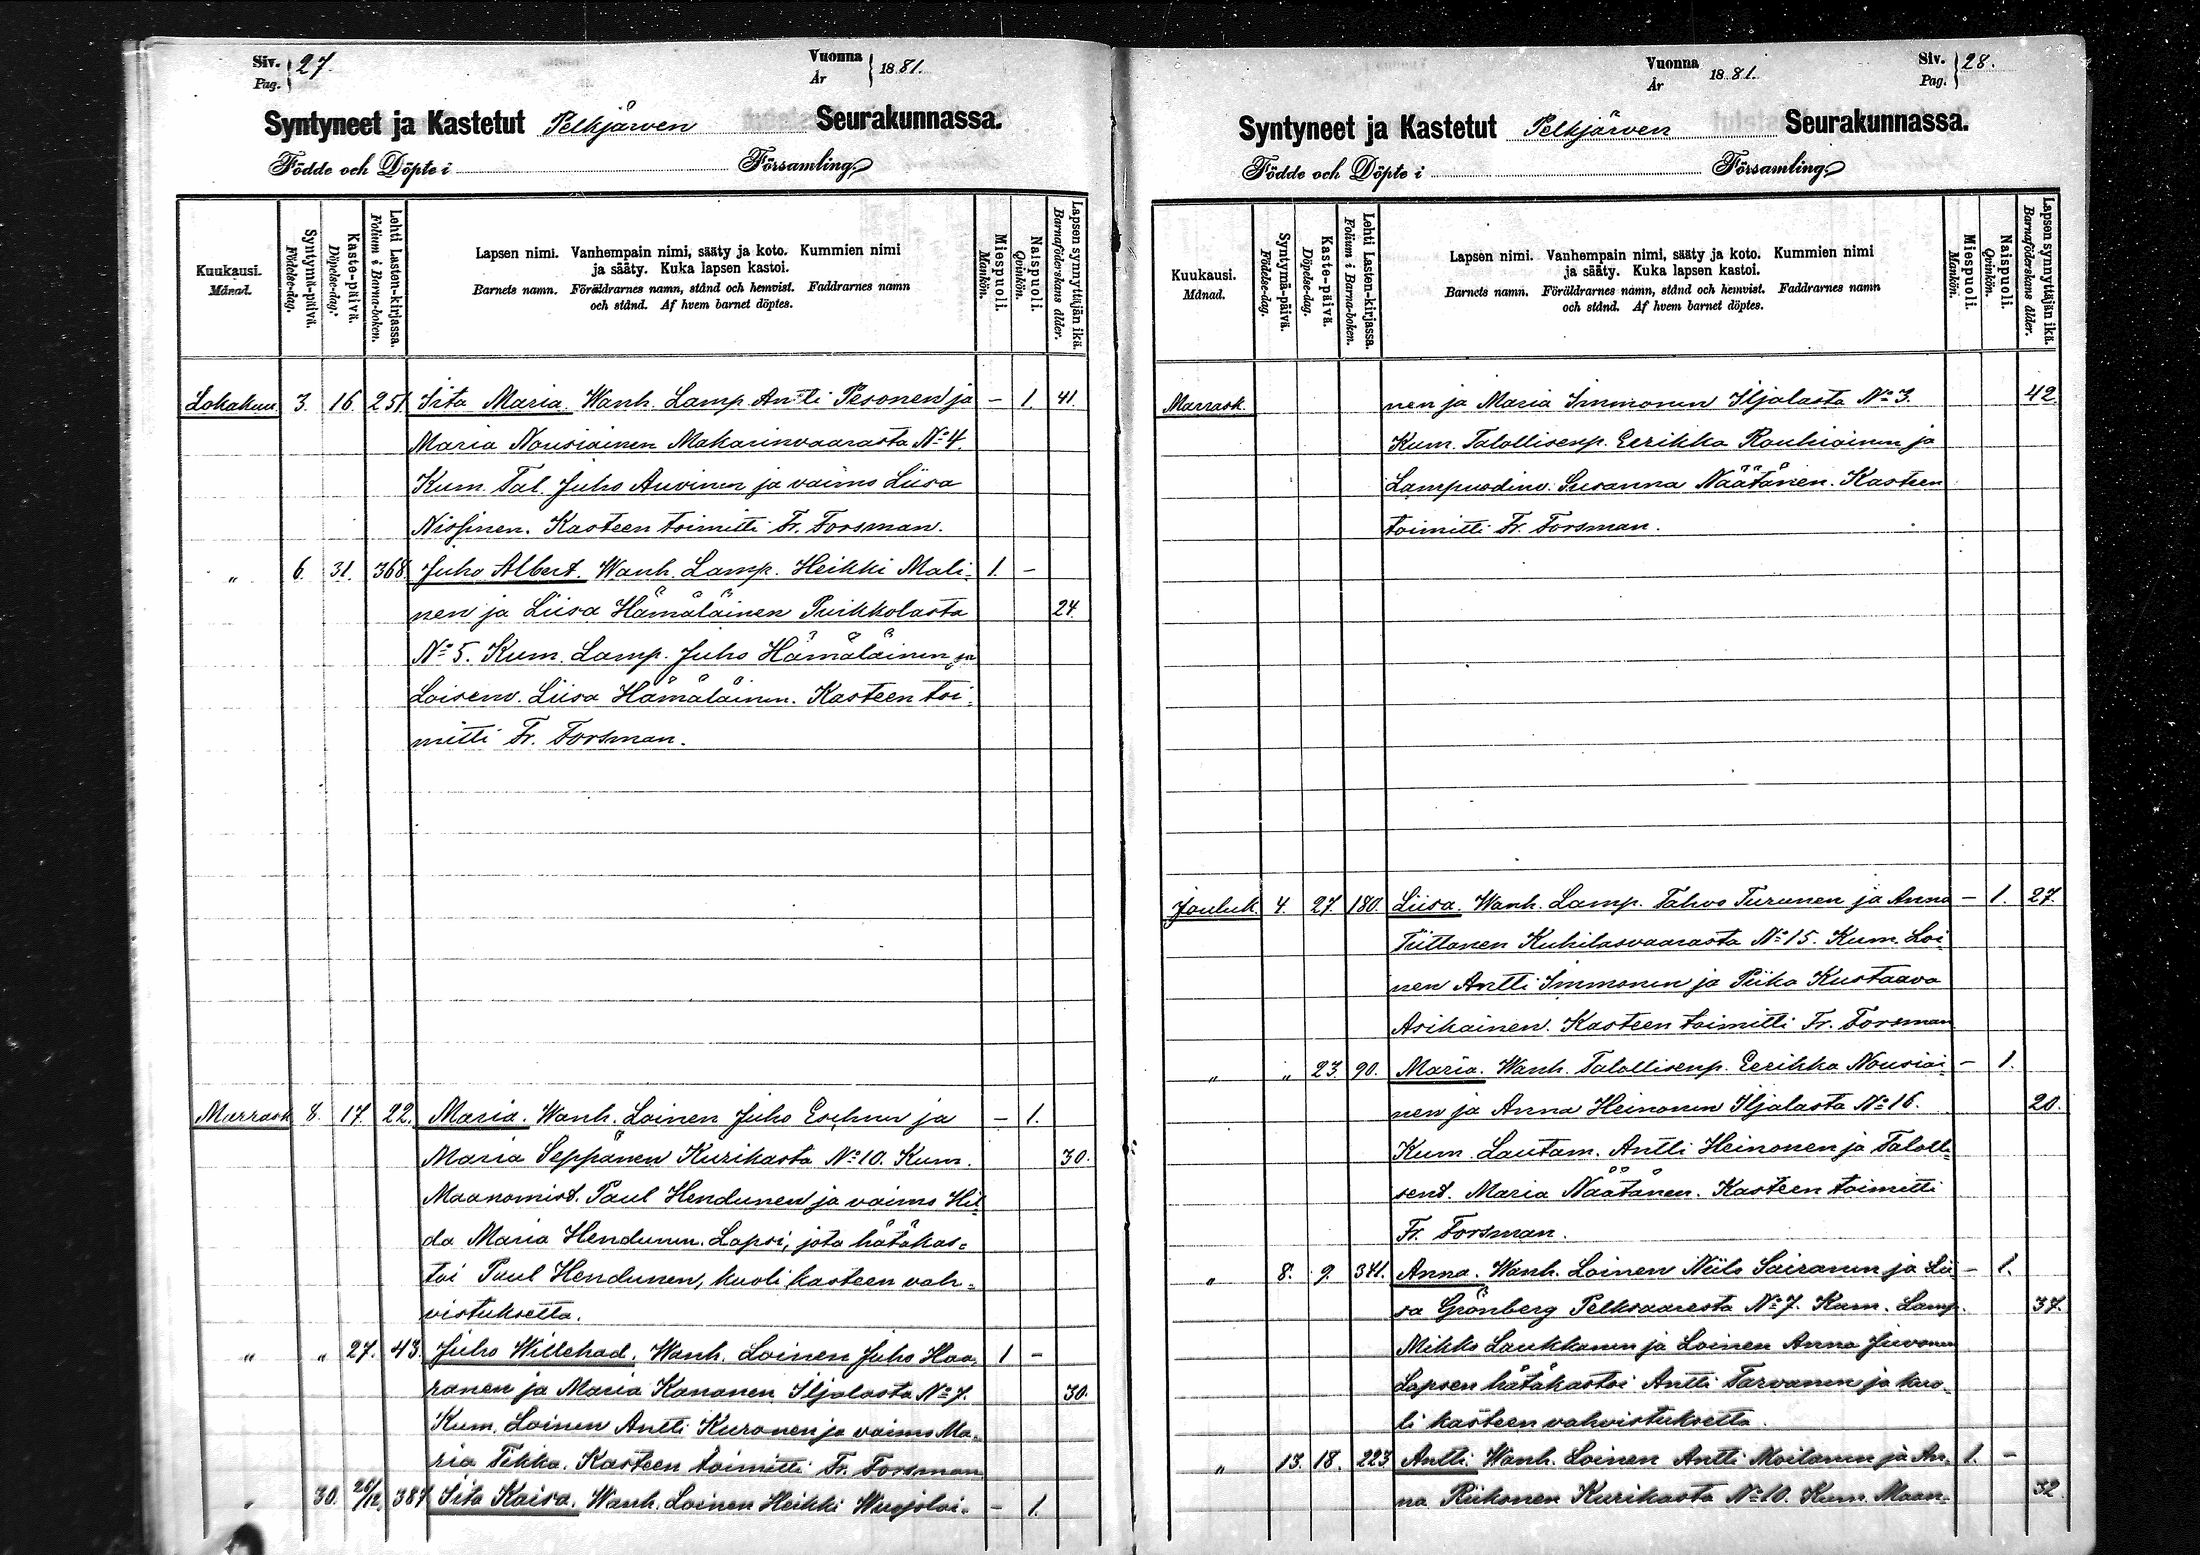 Siv. 27.
Pag.
Vuonna 1881.
År
Syntyneet ja Kastetut Pelkjärven Seurakunnassa.
Födde och Döpte i Församling.
Kuukausi. Månad.
Syntymä-päivä. Födelse-dag.
Kaste-päivä. Döpelse-dag.
Lehti Lasten-kirjassa. Folium i Barna-boken.
Lapsen nimi. Vanhempain nimi, sääty ja koto. Kummien nimi
ja sääty. Kuka lapsen kastoi.
Barnets namn. Föräldrarnes namn, stånd och hemvist. Faddrarnes namn
och stånd. Af hvem barnet döptes.
Miespuoli. Mankön.
Naispuoli. Qvinkön.
Lapsen synnyttäjän ikä. Barnaföderskans ålder.
Lokakuu 3. 16 251 Iita Maria. Wanh. Lamp. Antti Pesonen ja — 1. 41
Maria Nousiainen Makarinvaarasta No 4.
Kum. Tal. Juho Auvinen ja vaimo Liisa
Nissinen. Kasteen toimitti Fr. Forsman.
" 6. 31. 368. Juho Albert. Wanh. Lamp. Heikki Mali- 1. —
nen ja Liisa Hämäläinen Puikkolasta 24.
No 5. Kum. Lamp. Juho Hämäläinen ja
Loisenv. Liisa Hämäläinen. Kasteen toi-
mitti Fr. Forsman.
Marrask 8. 17. 22. Maria. Wanh. Loinen Juho Eronen ja — 1.
Maria Seppänen Kurikasta No 10. Kum. 30.
Maanomist. Paul Hendunen ja vaimo Hil-
da Maria Hendunen. Lapsi, jota hätäkas-
toi Paul Hendunen, kuoli kasteen vah-
vistuksetta.
" " 27. 43. Juho Willehad. Wanh. Loinen Juho Haa- 1 —
ranen ja Maria Kananen Iljalasta No 7. 30.
Kum. Loinen Antti Kuronen ja vaimo Ma-
ria Tikka. Kasteen toimitti Fr. Forsman
" 30. 26/12. 387 Iita Kaisa. Wanh. Loinen Heikki Wuojolai- — 1.
Vuonna 1881.
År
Siv. 28.
Pag.
Syntyneet ja Kastetut Pelkjärven Seurakunnassa.
Födde och Döpte i Församling.
Kuukausi. Månad.
Syntymä-päivä. Födelse-dag.
Kaste-päivä. Döpelse-dag.
Lehti Lasten-kirjassa. Folium i Barna-boken.
Lapsen nimi. Vanhempain nimi, sääty ja koto. Kummien nimi
ja sääty. Kuka lapsen kastoi.
Barnets namn. Föräldrarnes namn, stånd och hemvist. Faddrarnes namn
och stånd. Af hvem barnet döptes.
Miespuoli. Mankön.
Naispuoli. Qvinkön.
Lapsen synnyttäjän ikä. Barnaföderskans ålder.
Marrask. nen ja Maria Immonen Iljalasta No 3. 42.
Kum. Talollisenp. Eerikka Rouhiainen ja
Lampuodinv. Susanna Näätänen. Kasteen
toimitti Fr. Forsman.
Jouluk. 4. 27. 180. Liisa. Wanh. Lamp. Tahvo Turunen ja Anna — 1. 27.
Tiittanen Kuhilasvaarasta No 15. Kum. Loi-
nen Antti Immonen ja Piika Kustaava
Asikainen. Kasteen toimitti Fr. Forsman
" " 23. 90. Maria. Wanh. Talollisenp. Eerikka Nousiai- — 1.
nen ja Anna Heinonen Iljalasta No 16. 20.
Kum. Lautam. Antti Heinonen ja Talolli-
sent. Maria Näätänen. Kasteen toimitti
Fr. Forsman.
" 8. 9. 341. Anna. Wanh. Loinen Niilo Sairanen ja Lii- — 1.
sa Grönberg Pelksaaresta No 7. Kum. Lamp. 37.
Mikko Laukkanen ja Loinen Anna Juvonen
Lapsen hätäkastoi Antti Tarvanen ja kuo-
li kasteen vahvistuksetta.
" 13. 18. 223 Antti. Wanh. Loinen Antti Moilanen ja An- 1. —
na Riikonen Kurikasta No 10. Kum. Maan- 32.